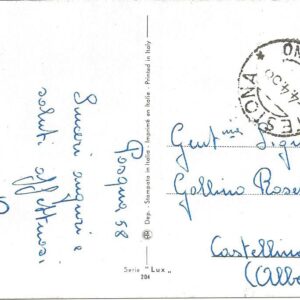 Pasqua 58
Sinceri auguri e
saluti affettuosi
Dep. - Stampato in Italia - Imprimé en Italie - Printed in Italy
Serie "Lux"
204
Gent.me Sign
Gallino Rose
Castellin
(Alba
ESIONA * NO